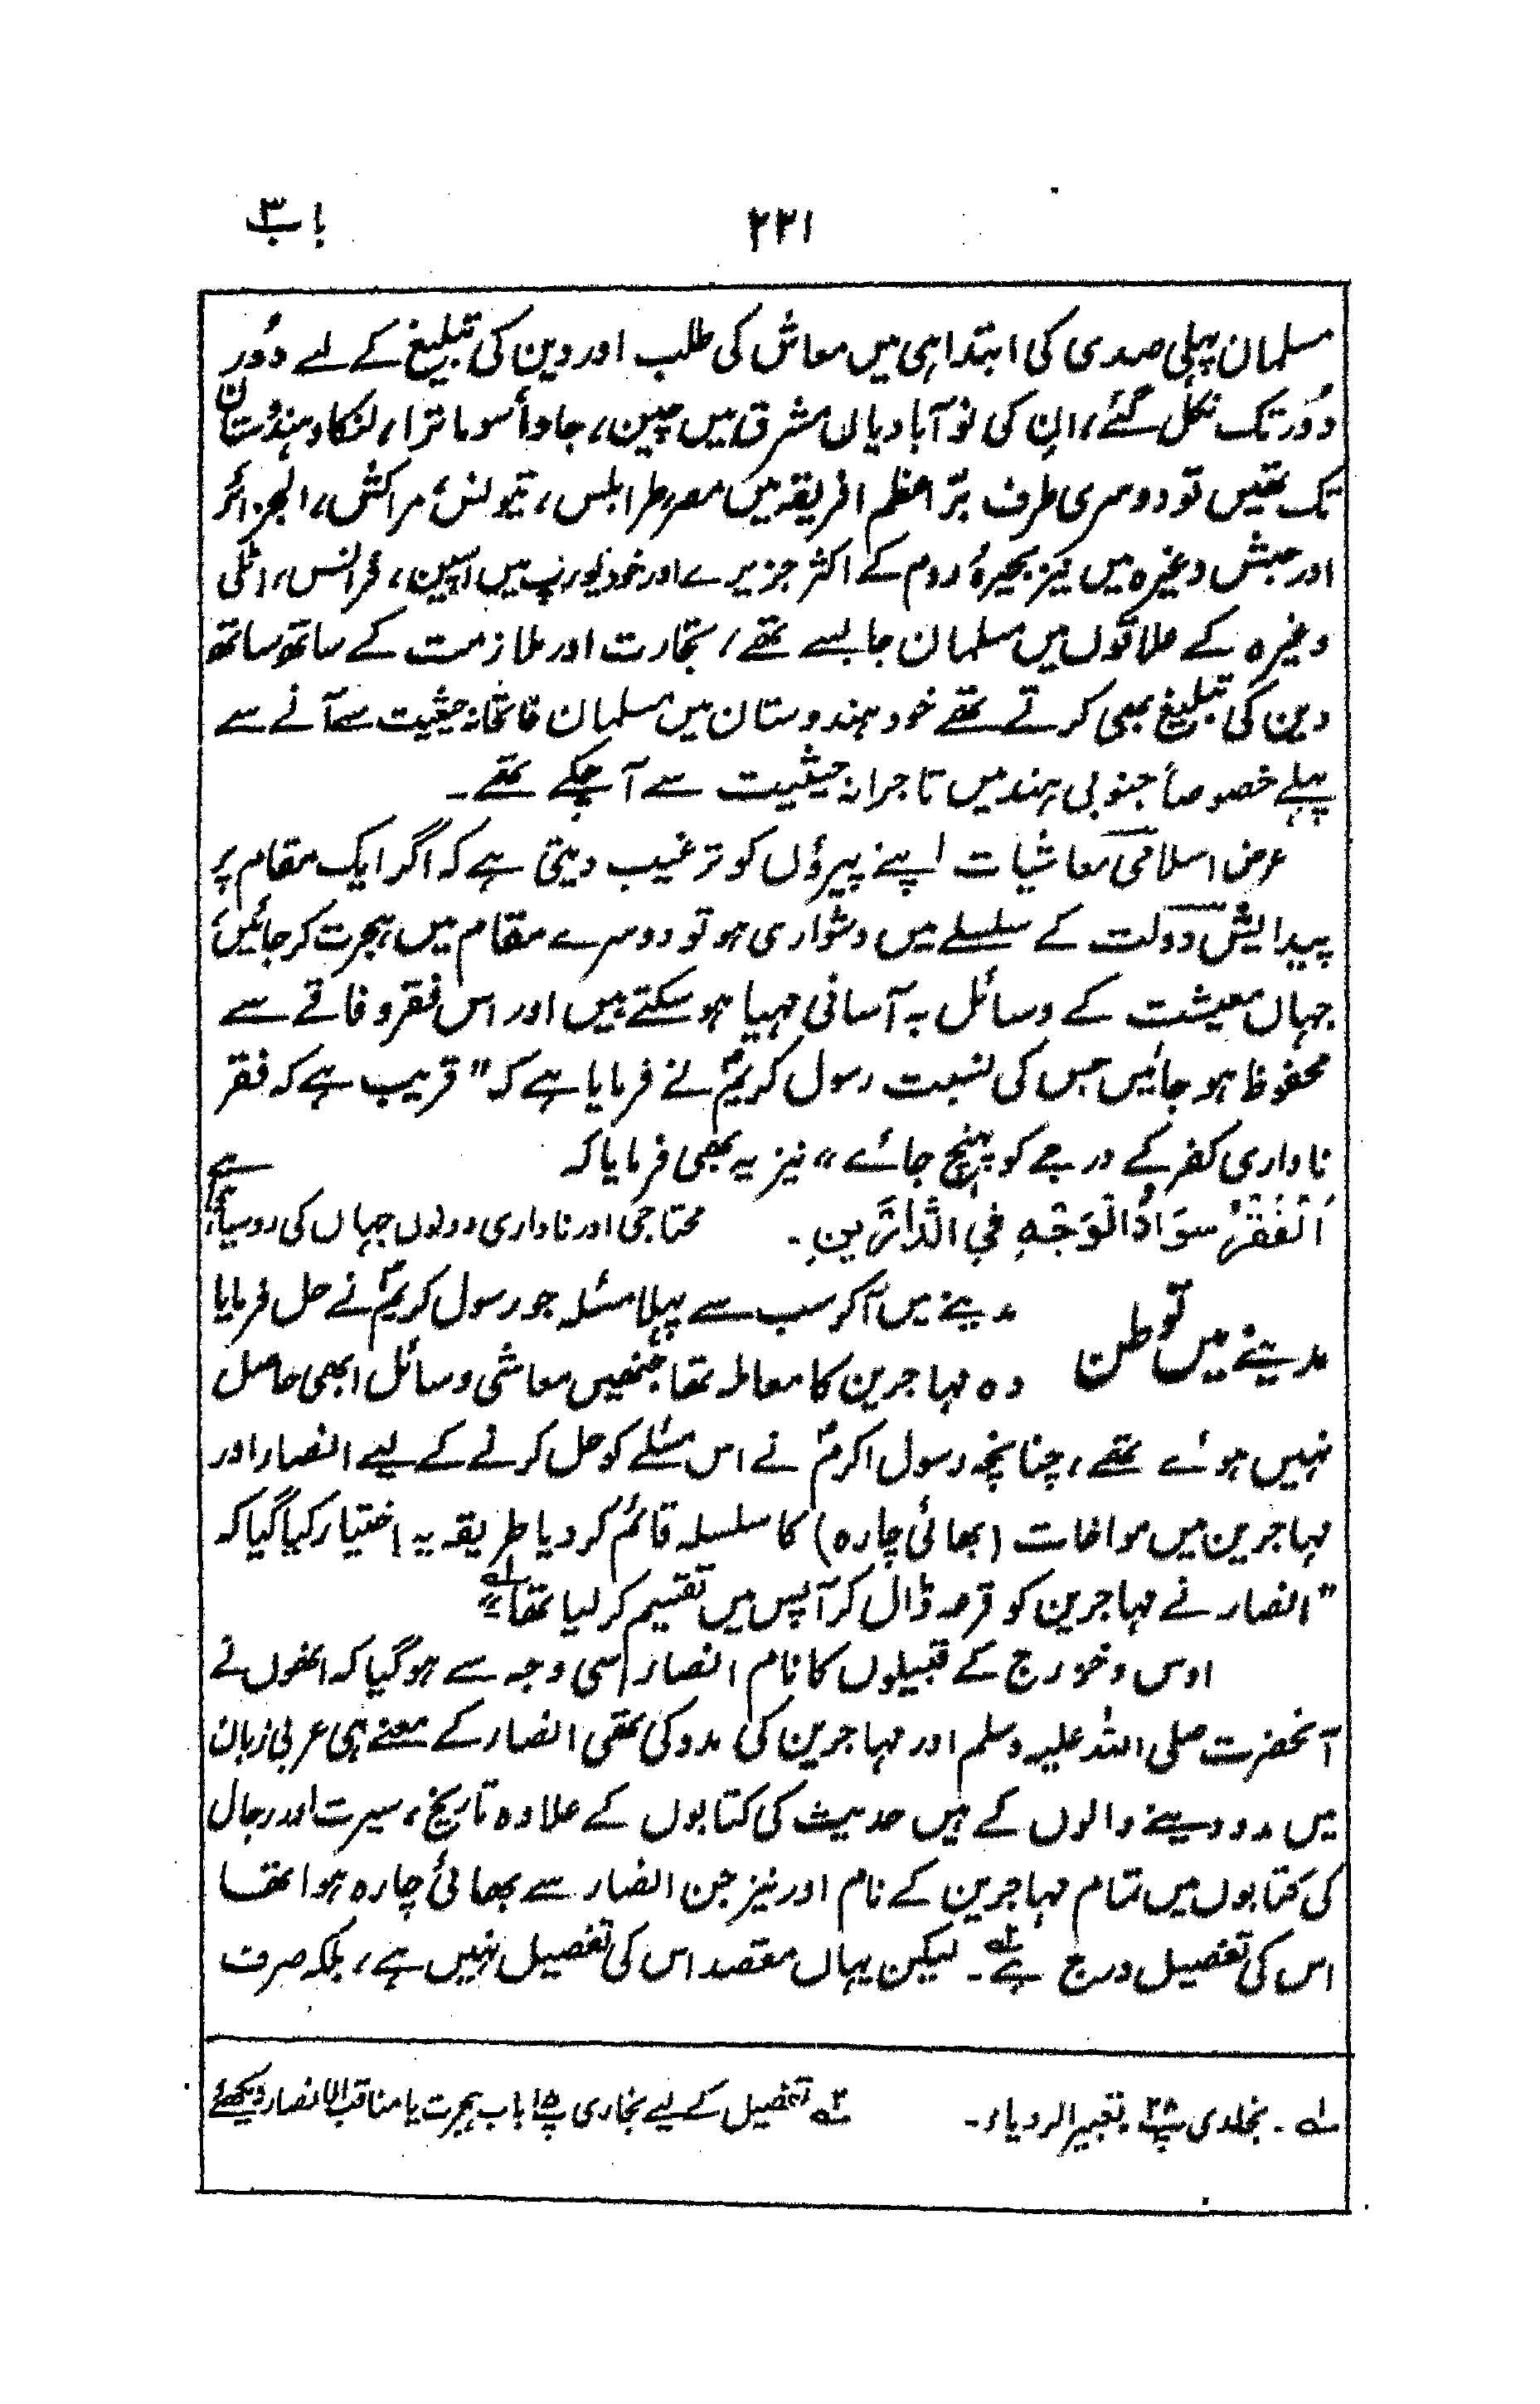 باب ۳
۲۲۱
مسلمان پہلی صدی کی ابتدا ہی میں معاش کی طلب اور دین کی تبلیغ کے لیے دُور
دُور تک نکل گئے، ان کی نو آبادیاں مشرق میں چین، جاوا، سوماترا، لنکا و ہندوستان
تک تھیں تو دوسری طرف برّ اعظم افریقہ میں مصر، طرابلس، تیونس، مراکش، الجزائر
اور حبش وغیرہ میں نیز بحیرۂ روم کے اکثر جزیرے اور خود یورپ میں اسپین، فرانس، اٹلی
وغیرہ کے علاقوں میں مسلمان جا بسے تھے، تجارت اور ملازمت کے ساتھ ساتھ
دین کی تبلیغ بھی کرتے تھے خود ہندوستان میں مسلمان فاتحانہ حیثیت سے آنے سے
پہلے خصوصاً جنوبی ہند میں تاجرانہ حیثیت سے آ چکے تھے۔
غرض اسلامی معاشیات اپنے پیروؤں کو ترغیب دیتی ہے کہ اگر ایک مقام پر
پیدایش دولت کے سلسلے میں دشواری ہو تو دوسرے مقام میں ہجرت کر جائیں،
جہاں معیشت کے وسائل بہ آسانی مہیا ہو سکتے ہیں اور اس فقر و فاقے سے
محفوظ ہو جائیں جس کی نسبت رسول کریمؐ نے فرمایا ہے کہ "قریب ہے کہ فقر
ناداری کفر کے درجے کو پہنچ جائے" نیز یہ بھی فرمایا کہ
اَلْفَقْرُ سَوَادُ الْوَجْہِ فِی الدَّارَیْنِ۔ محتاجی اور ناداری دونوں جہاں کی روسیاہی ہے
مدینے میں توطن
مدینے میں آکر سب سے پہلا مسئلہ جو رسول کریمؐ نے حل فرمایا
وہ مہاجرین کا معاملہ تھا جنھیں معاشی وسائل ابھی حاصل
نہیں ہوئے تھے، چنانچہ رسول اکرمؐ نے اس مسئلے کو حل کرنے کے لیے انصار اور
مہاجرین میں مواخات (بھائی چارہ) کا سلسلہ قائم کر دیا طریقہ یہ اختیار کیا گیا کہ
"انصار نے مہاجرین کو قرعہ ڈال کر آپس میں تقسیم کر لیا تھا" ۱؎
اوس و خزرج کے قبیلوں کا نام انصار اسی وجہ سے ہو گیا کہ انھوں نے
آنحضرت صلی اللہ علیہ وسلم اور مہاجرین کی مدد کی تھی انصار کے معنے ہی عربی زبان
میں مدد دینے والوں کے ہیں حدیث کی کتابوں کے علاوہ تاریخ، سیرت اور رجال
کی کتابوں میں تمام مہاجرین کے نام اور نیز جن انصار سے بھائی چارہ ہوا تھا
اس کی تفصیل درج ہے ۲؎۔ لیکن یہاں مقصد اس کی تفصیل نہیں ہے، بلکہ صرف
۱؎۔ بخاری پ ۲۸ تعبیر الرویاء۔
۲؎ تفصیل کے لیے بخاری پ ۱۵ باب ہجرت یا مناقب الانصار دیکھئے